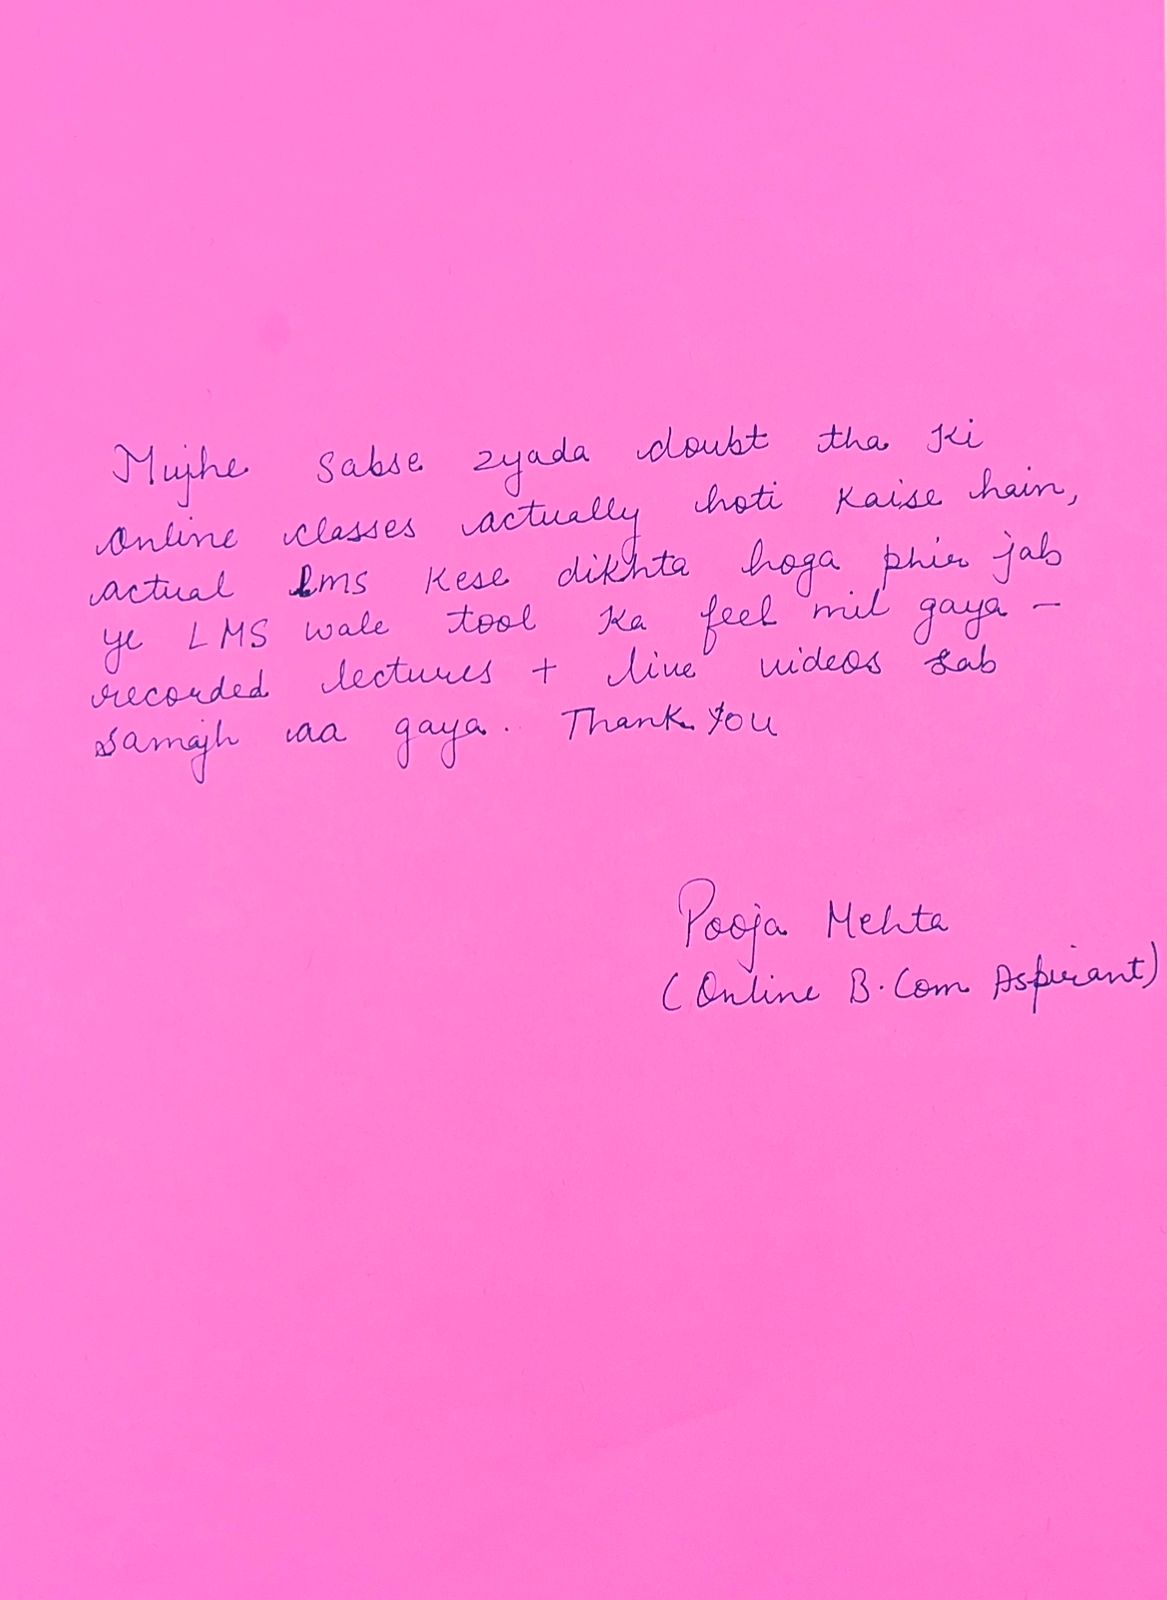 Mujhe sabse zyada doubt tha ki
online classes actually hoti kaise hain,
actual LMS kese dikhta hoga phir jab
ye LMS wale tool ka feel mil gaya -
recorded lectures + live videos sab
samajh aa gaya.. Thank You
Pooja Mehta
(Online B.Com Aspirant)